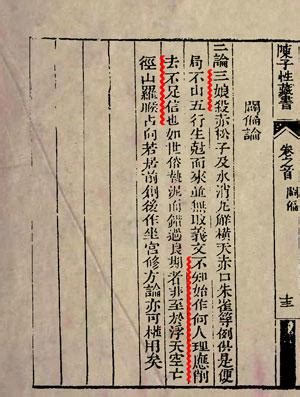 陳子性藏書
卷之首
闢偽
闢偽論
三論三娘殺赤松子及水消瓦解橫天赤口朱雀等例俱是便
局不由五行生剋而來並無取義文不知始作何人理應削
去不足信也如世俗執泥而錯過良期者非至於浮天空亡
徑山羅睺占向若居前剏後作坐宮修方論亦可權用矣